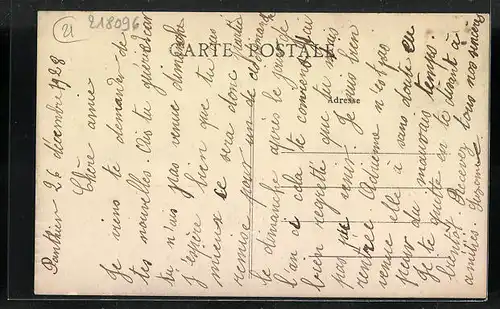 21
218096
CARTE POSTALE
Adresse
26 décembre 1928
Chère amie
Je viens te demander de
tes nouvelles. Vas tu
tu n'ais pas venue dimanche
J'espère bien que tu vas
mieux ce sera donc partie
remise pour un de ces dimanche
le dimanche après le jour de
l'an si cela te convient. J'ai
bien regretté que tu n'ais
pas pu venir. Je suis bien
rentrée. Adrienne n'est pas
venue elle a sans doute eu
peur du mauvais temps
Je te quitte en te disant à
bientôt Recevez tous nos sincères
amitiés